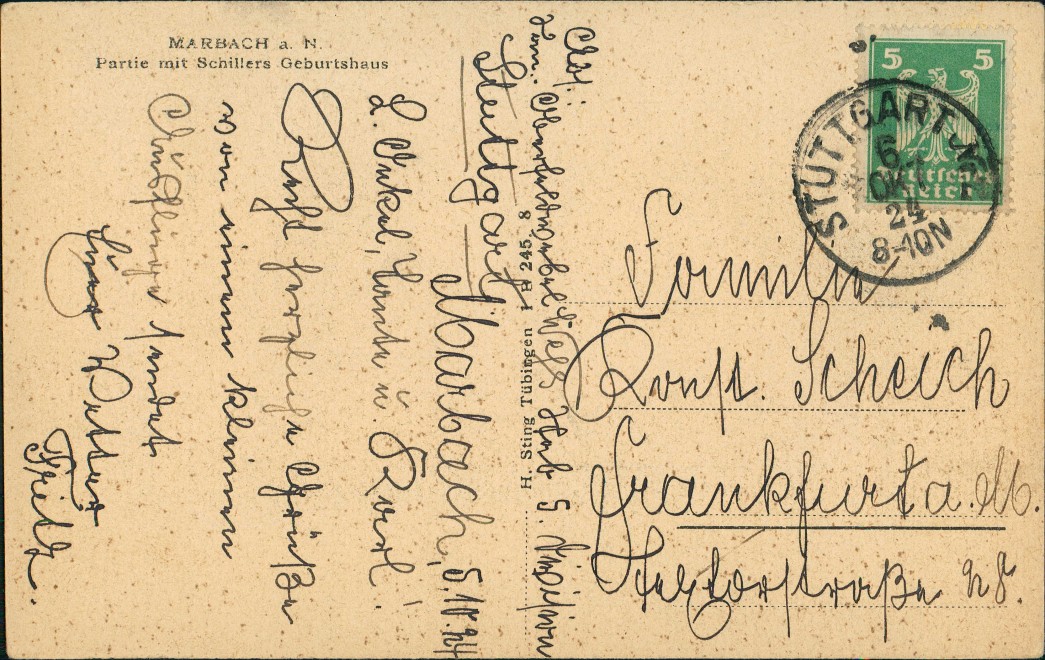 MARBACH a. N.
Partie mit Schillers Geburtshaus
Marbach, 5.10.24
L. Onkel, Tante u. Karl!
Recht herzliche Grüße
von einem kleinen
Ausfluge sendet
Euer Vetter
Fritz.
Abs.:
Stuttgart
H. Sting Tübingen 1 B 245 8
5 5
Deutsches
Reich
STUTTGART Nr. 1
6.
OKT
24
8-10N
Familie
Konst. Scheich
Frankfurt a. M.